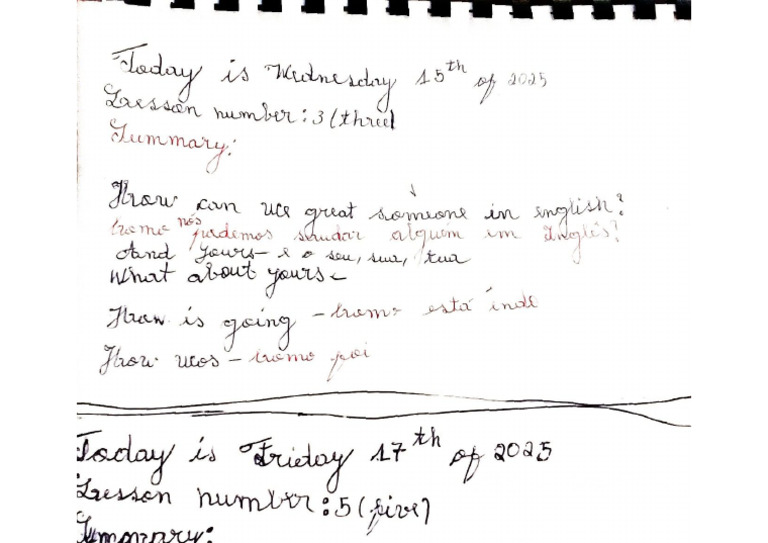 Today is Wednesday 15th of 2025
Lesson number: 3 (three)
Summary:
How can we great someone in english?
Como nós podemos saudar alguem em Inglês?
And yours - e o seu, sua, tua
What about yours -
How is going - Como está indo
How was - Como foi
Today is Frieday 17th of 2025
Lesson number: 5 (five)
Summary: